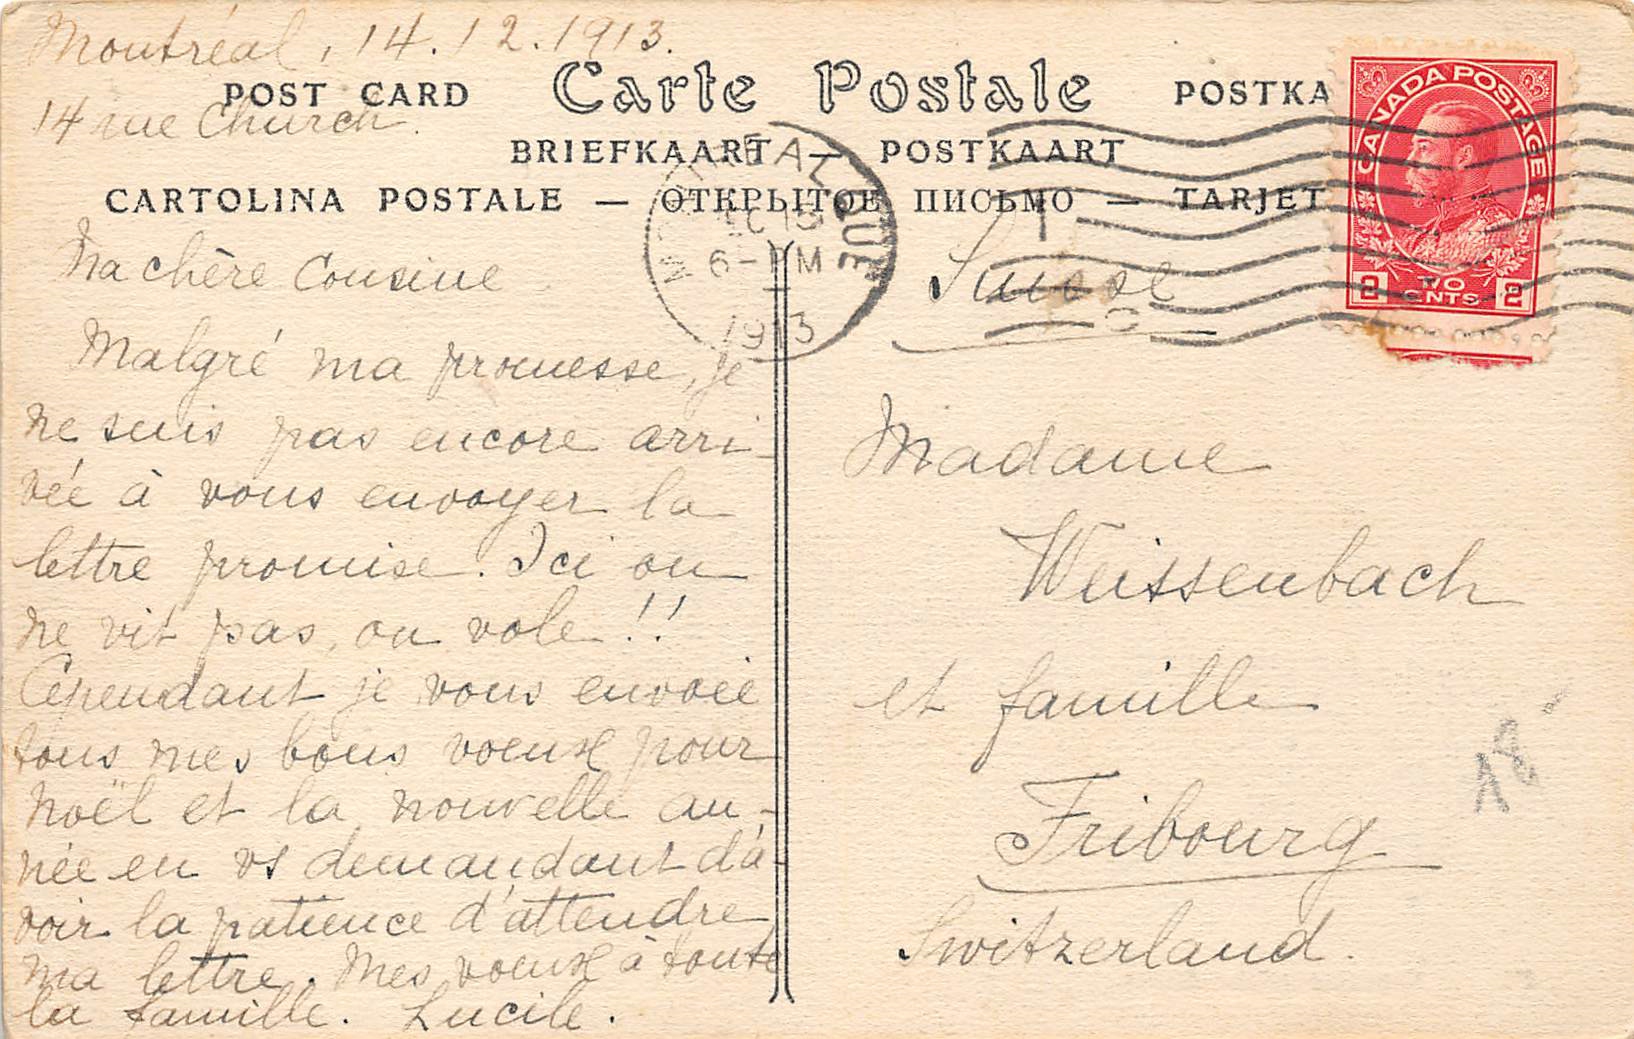 Montréal, 14.12.1913.
POST CARD Carte Postale POSTKA
14 rue Church.
BRIEFKAART — POSTKAART
CARTOLINA POSTALE — ОТКРЫТОЕ ПИСЬМО — TARJET
CANADA POSTAGE
2 CENTS 2
MONTREAL QUE
6 - PM
1913
Ma chère Cousine
Malgré ma promesse, je
ne suis pas encore arri-
vée à vous envoyer la
lettre promise. Ici on
ne vit pas, on vole !!
Cependant je vous envoie
tous mes bons voeux pour
Noël et la nouvelle an-
née en vs demandant d'a-
voir la patience d'attendre
ma lettre. Mes voeux à toute
la famille. Lucile.
Suisse
Madame
Weissenbach
et famille
Fribourg
Switzerland.